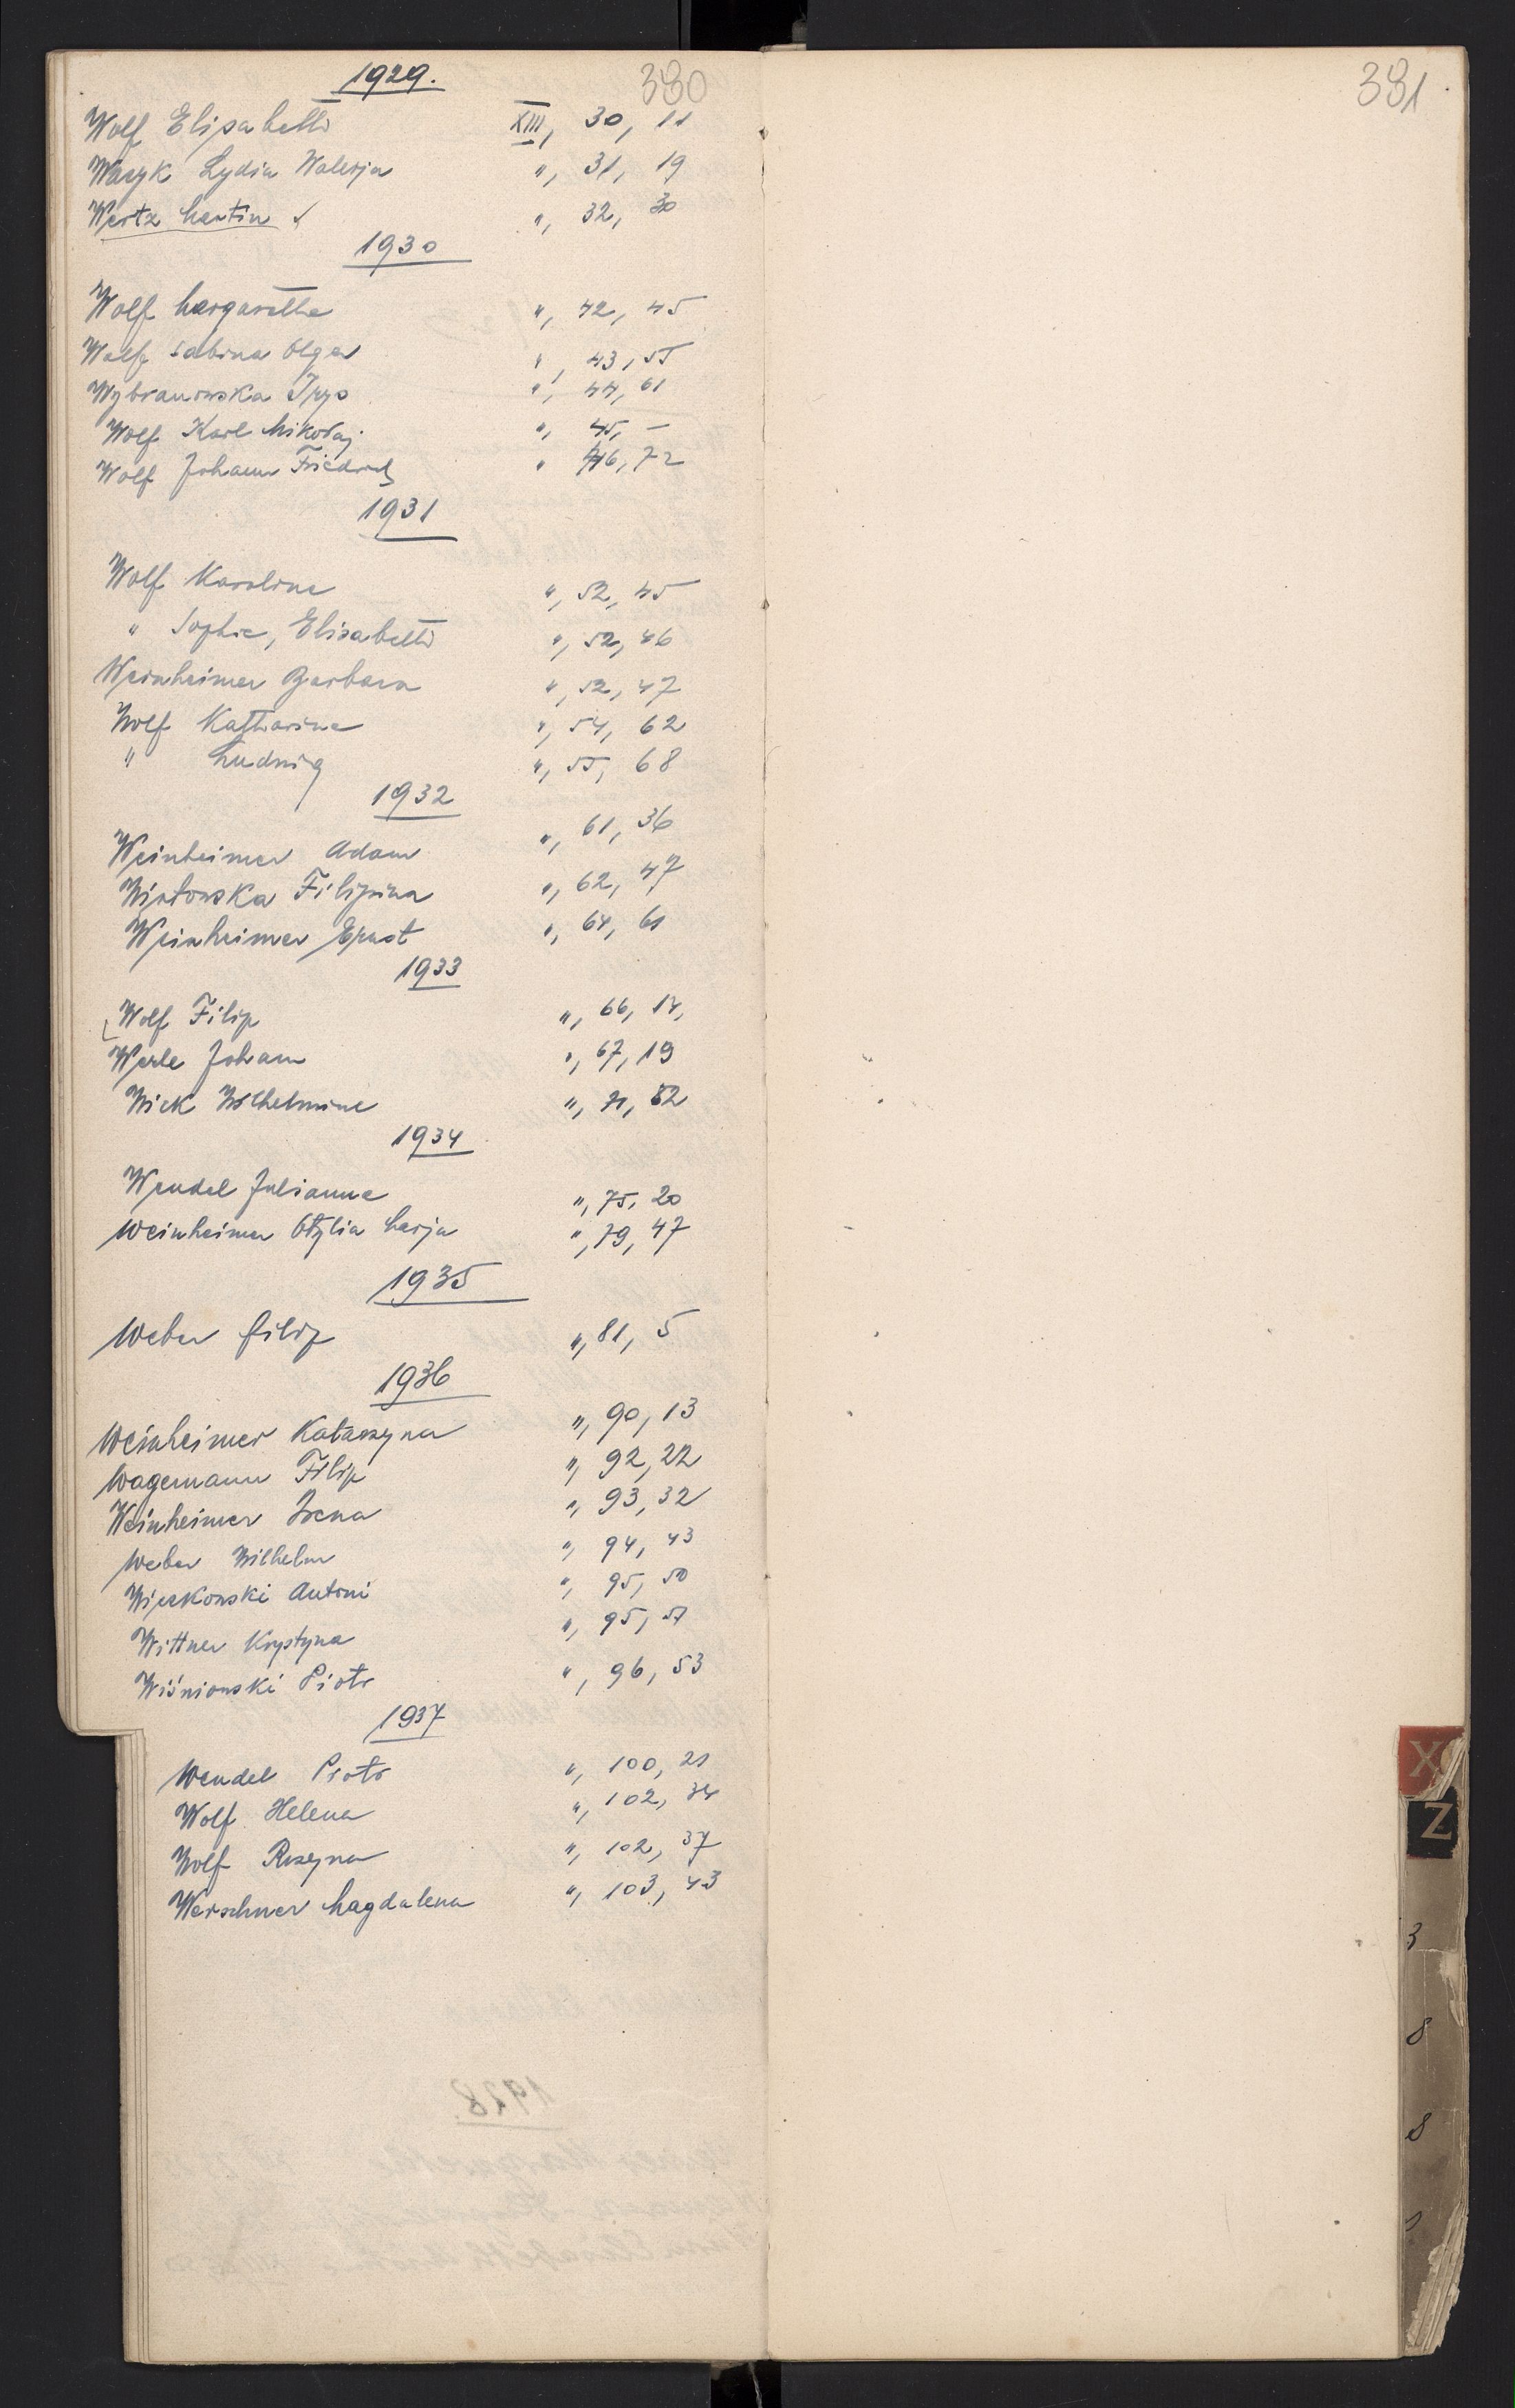 1929. 380
Wolf Elisabeth XIII, 30, 11
Waryk Lydia Walerja ", 31, 19
Wertz Martin ", 32, 30
1930
Wolf Margarethe ", 42, 45
Wolf Sabina Olga ", 43, 55
Wybranowska ", 44, 61
Wolf Karl Mikołaj ", 45, –
Wolf Johann Friedrich " 46, 72
1931
Wolf Karoline ", 52, 45
" Sophie, Elisabeth ", 52, 46
Weinheimer Barbara ", 52, 47
Wolf Katharina ", 54, 62
" Ludwig ", 55, 68
1932
Weinheimer Adam ", 61, 36
Filipina ", 62, 47
Weinheimer Ernst ", 64, 61
1933
Wolf Filip ", 66, 14,
Werle Johann ", 67, 19
Wick Wilhelmine ", 71, 52
1934
Wendel Julianne ", 75, 20
Weinheimer Otylia Marja ", 79, 47
1935
Weber Filip ", 81, 5
1936
Weinheimer Katarzyna ", 90, 13
Wagemann Filip ", 92, 22
Weinheimer Irena ", 93, 32
Weber Wilhelm ", 94, 43
Wieckowski Antoni ", 95, 50
Wittner Krystyna ", 95, 51
Wiśniowski Piotr ", 96, 53
1937
Wendel Piotr ", 100, 21
Wolf Helena ", 102, 34
Wolf ", 102, 37
Werschner Magdalena ", 103, 43
381
X
Z
3
8
8